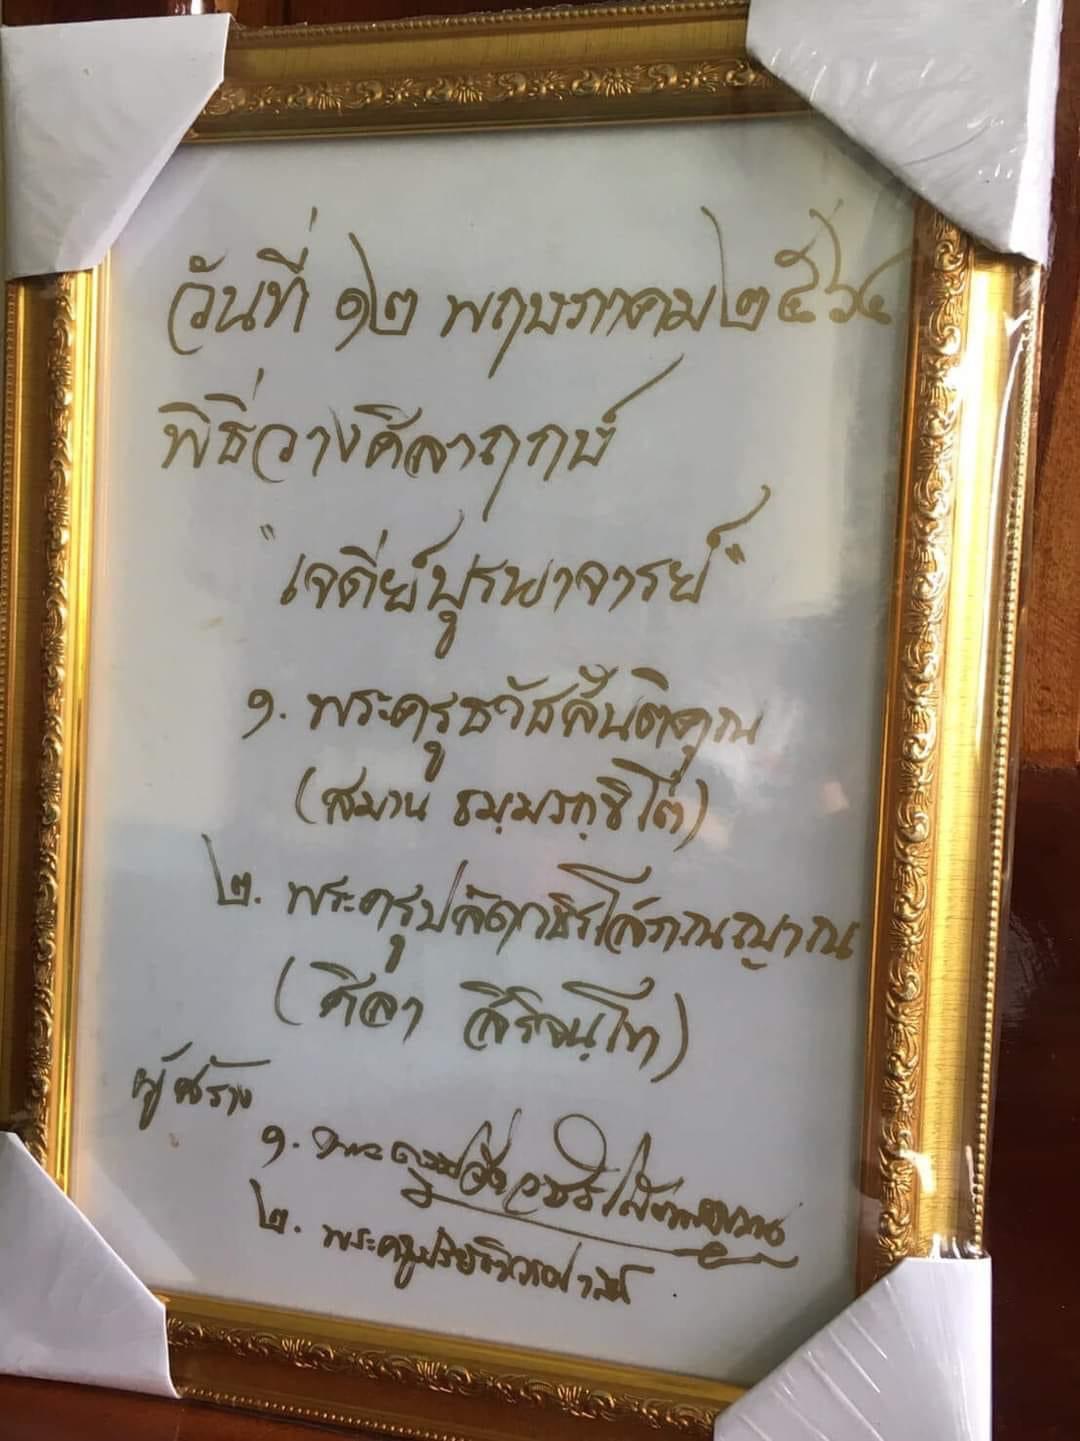 วันที่ ๑๒ พฤษภาคม ๒๕๖๔
พิธีวางศิลาฤกษ์
"เจดีย์บูรพาจารย์"
๑. พระครูธวัชสันติคุณ
(สมาน ธมฺมรกฺขิโต)
๒. พระครูปลัดาธิรโสภณญาณ
(ศิลา สิริจนฺโท)
ผู้สร้าง
๑. พระครู
๒. พระครู